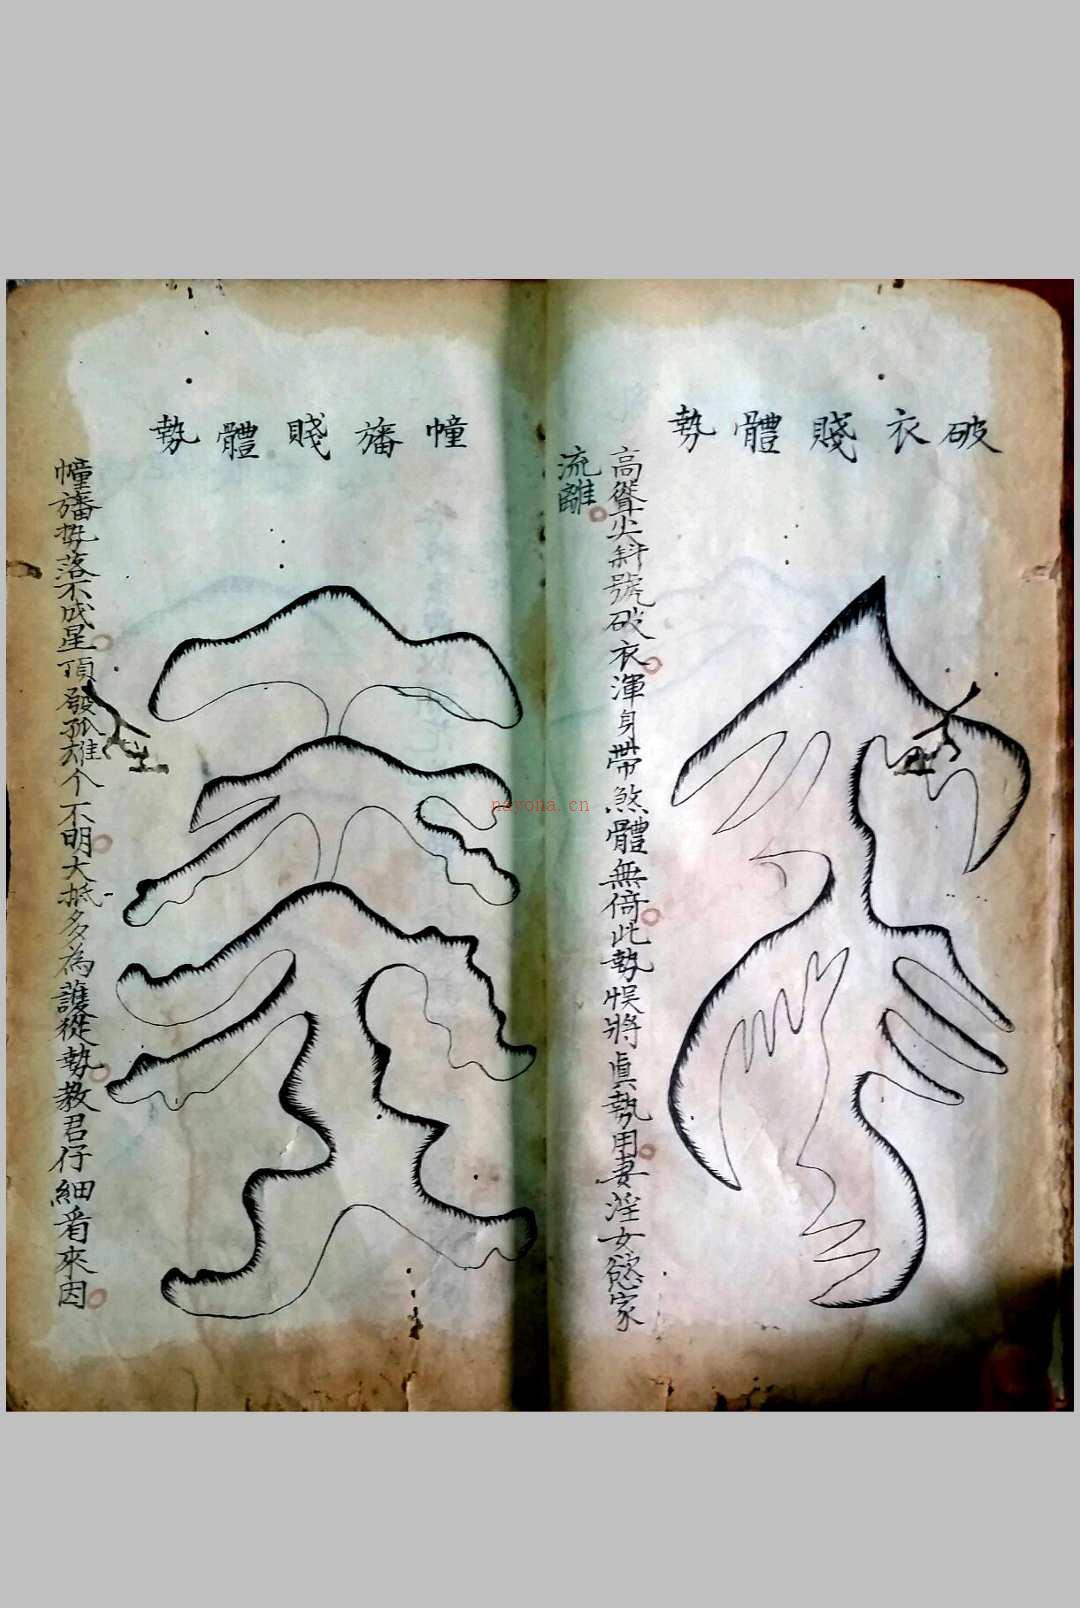 破衣賤體勢
高聳尖斜號破衣渾身帶煞體無倚此勢悞將真執用妻淫女慾家
流離
幢旛賤體勢
幢旛勢落不成星頂發孤雄个不明大抵多為護從勢教君仔細看來因
nayona.cn